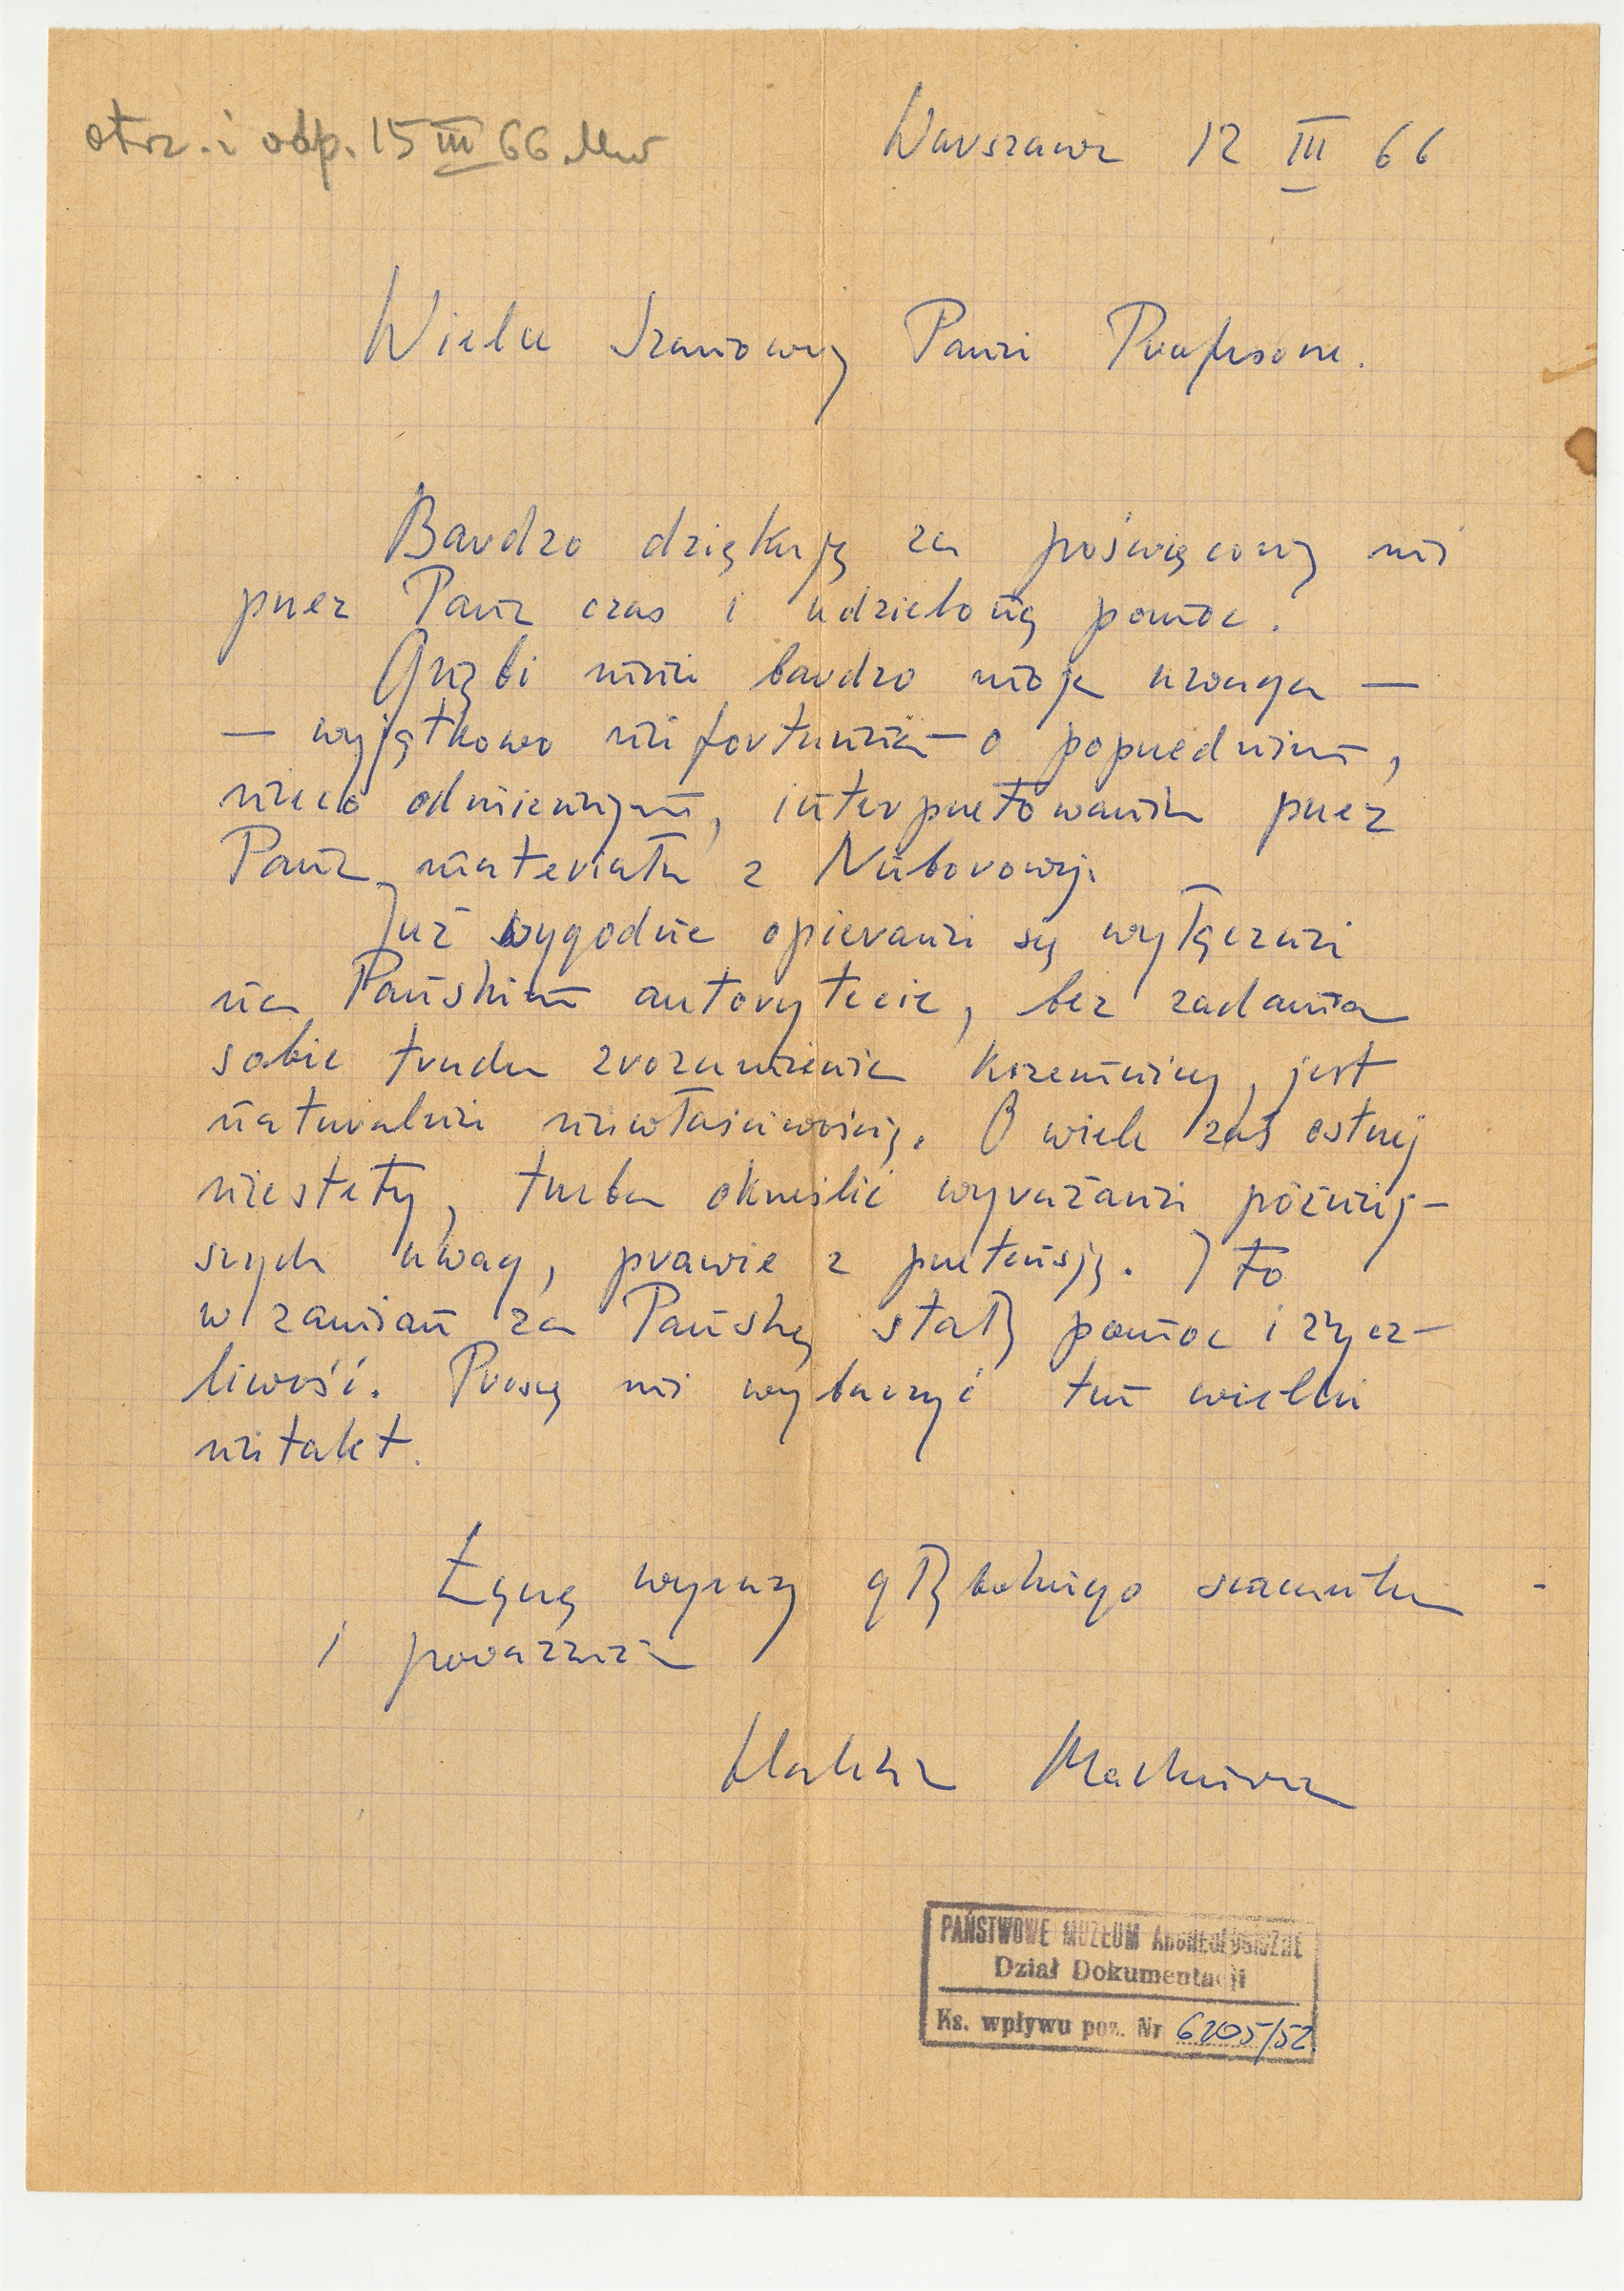 otrz. i odp. 15 III 66
Warszawa 12 III 66
Wielce Szanowny Panie Profesorze.
Bardzo dziękuję za poświęcony mi
przez Pana czas i udzieloną pomoc.
Gnębi mnie bardzo moja uwaga —
— wyjątkowo niefortunna — o poprzednim,
nieco odmiennym, interpretowaniu przez
Pana materiału z Nieborowej.
Już wygodne opieranie się wyłącznie
na Pańskim autorytecie, bez zadania
sobie trudu zrozumienia krzemnicy, jest
naturalnie niewłaściwością. O wiele zaś ostrzej
niestety, trzeba określić wyrażanie później-
szych uwag, prawie z pretensją. I to
w zamian za Pańską stałą pomoc i życz-
liwość. Proszę mi wybaczyć ten wielki
nietakt.
Łączę wyrazy głębokiego szacunku
i poważania
Halina
PAŃSTWOWE MUZEUM ARCHEOLOGICZNE
Dział Dokumentacji
Ks. wpływu poz. Nr 6205/52